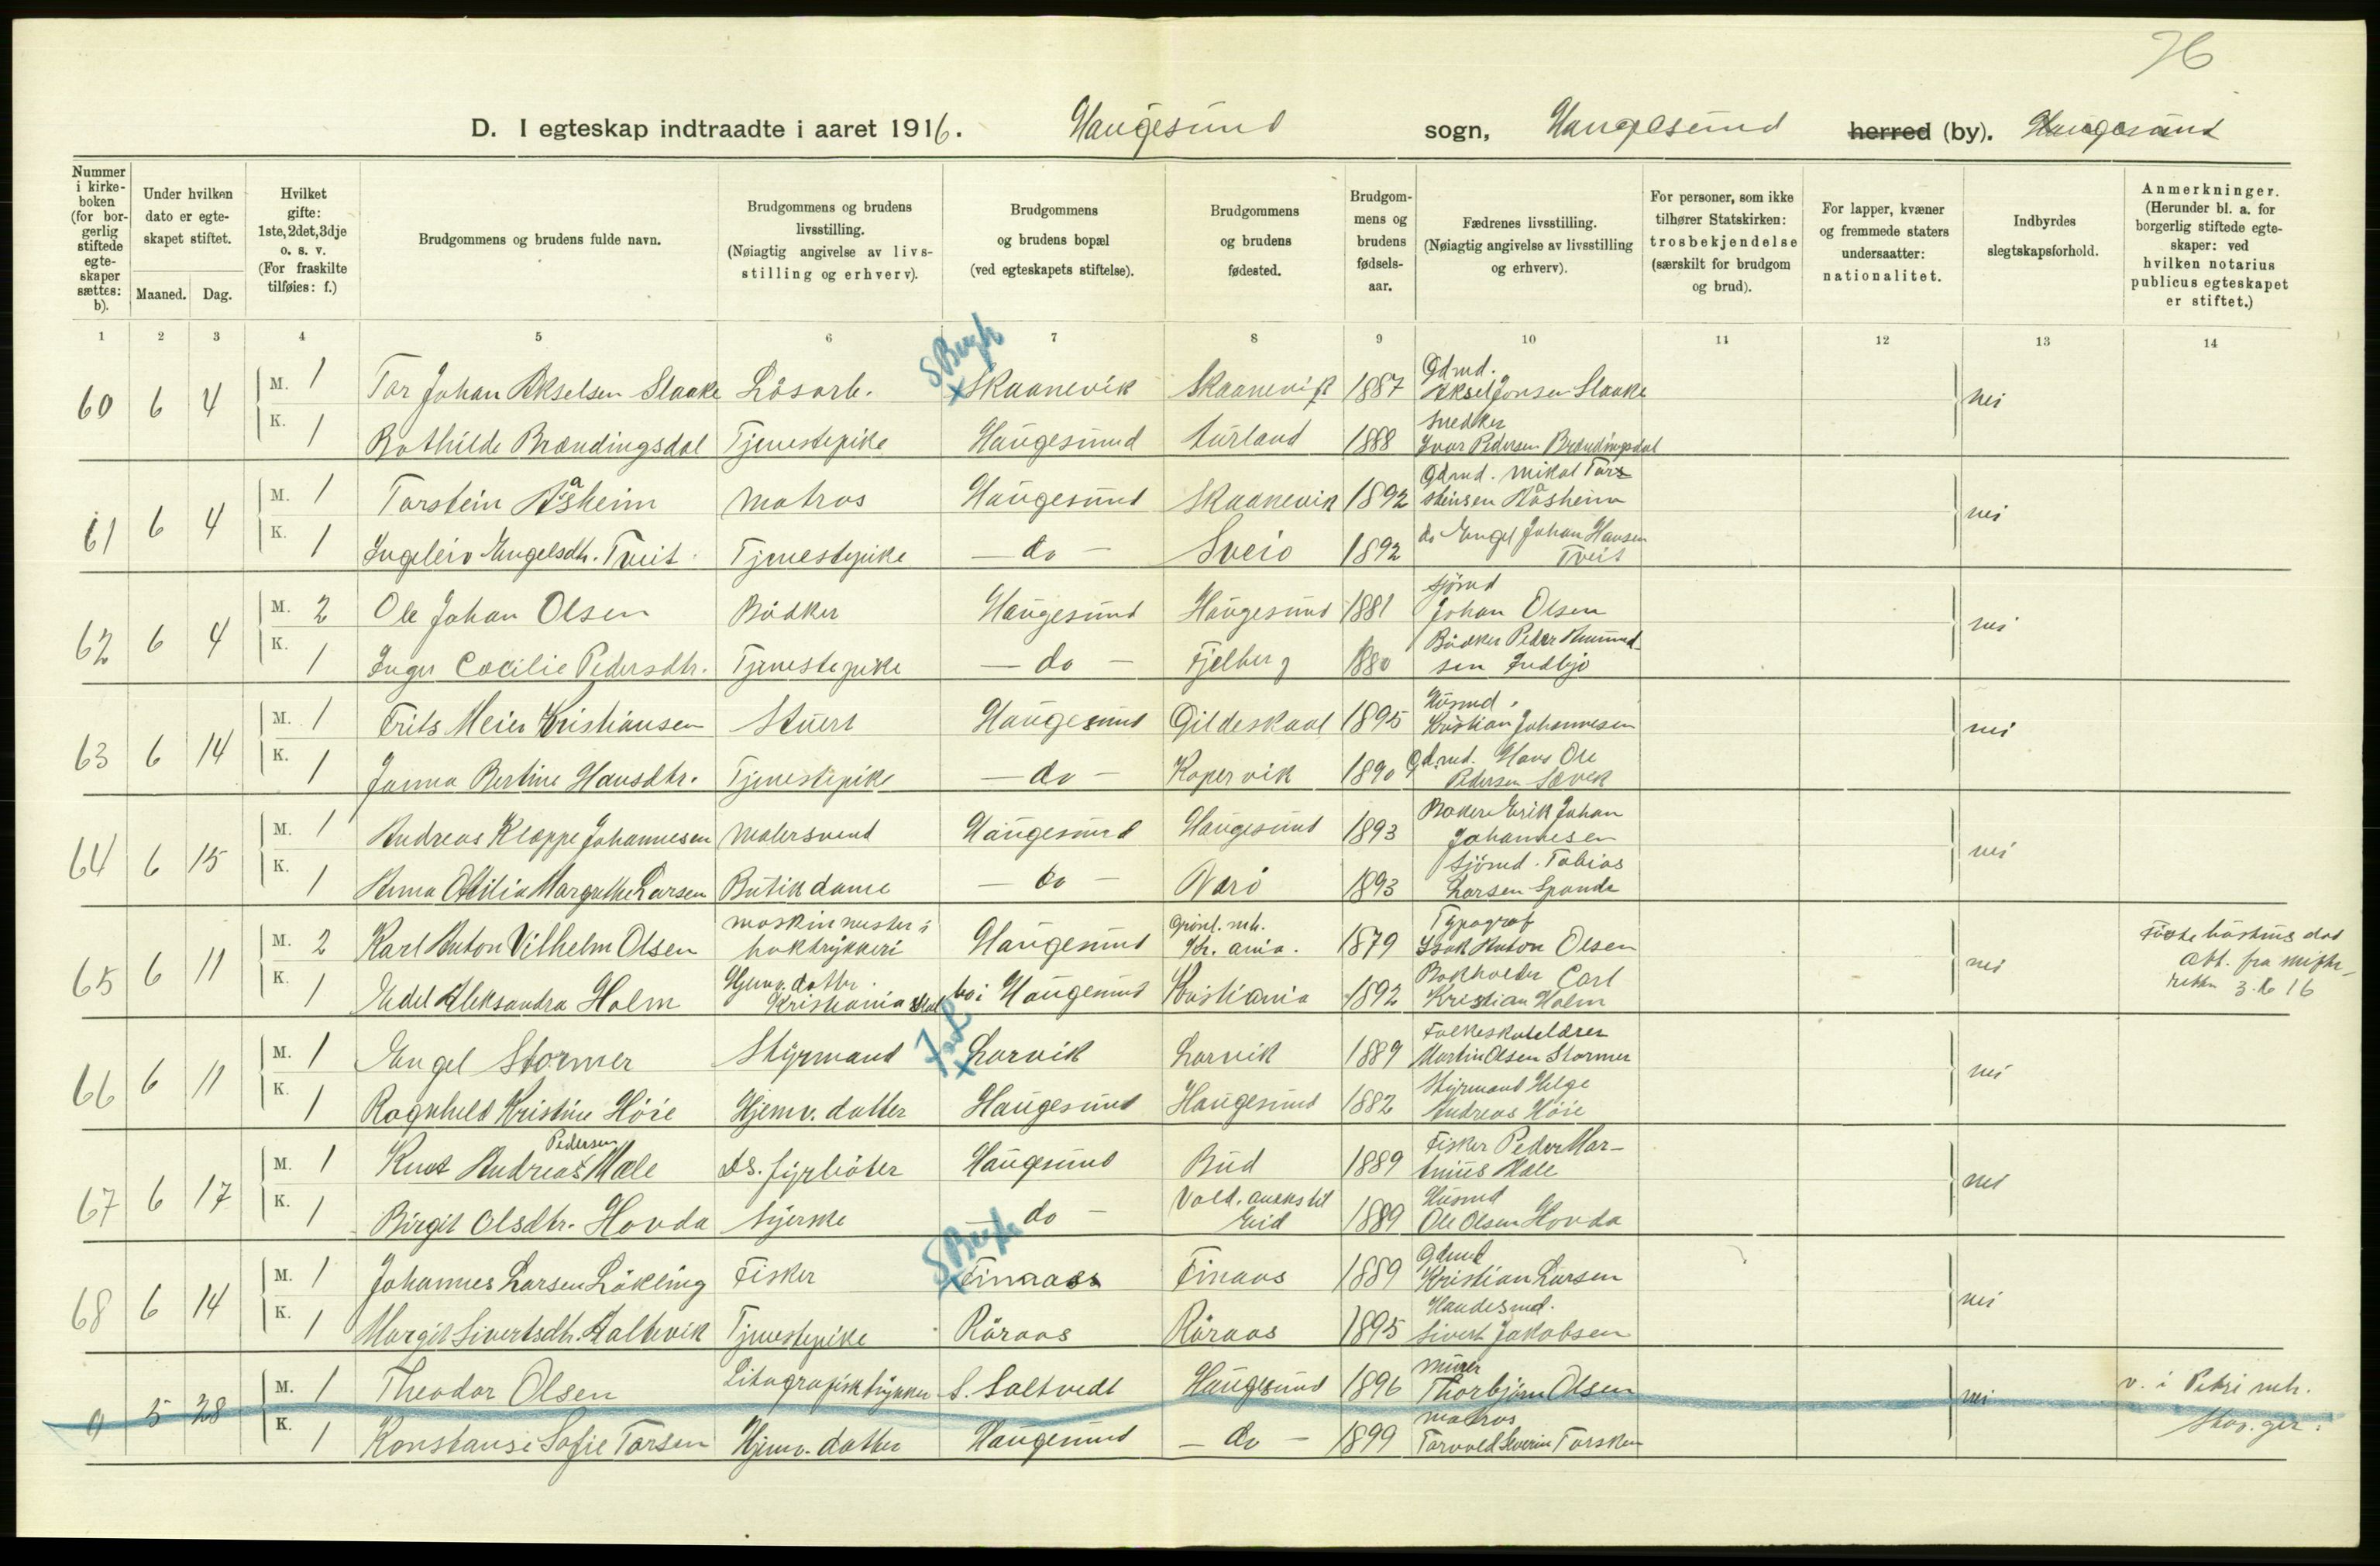 76
D. I egteskap indtraadte i aaret 1916. Haugesund sogn, Haugesund herred (by). Haugesund
Nummer i kirke- boken (for bor- gerlig stiftede egte- skaper sættes: b).
Under hvilken dato er egte- skapet stiftet.
Maaned. Dag.
Hvilket gifte: 1ste, 2det, 3dje o. s. v. (For fraskilte tilføies: f.)
Brudgommens og brudens fulde navn.
Brudgommens og brudens livsstilling. (Nøiagtig angivelse av livs- stilling og erhverv).
Brudgommens og brudens bopæl (ved egteskapets stiftelse).
Brudgommens og brudens fødested.
Brudgom- mens og brudens fødsels- aar.
Fædrenes livsstilling. (Nøiagtig angivelse av livsstilling og erhverv).
For personer, som ikke tilhører Statskirken: trosbekjendelse (særskilt for brudgom og brud).
For lapper, kvæner og fremmede staters undersaatter: nationalitet.
Indbyrdes slegtskapsforhold.
Anmerkninger. (Herunder bl. a. for borgerlig stiftede egte- skaper: ved hvilken notarius publicus egteskapet er stiftet.)
1 2 3 4 5 6 7 8 9 10 11 12 13 14
60 6 4 M. 1 Tor Johan Akselsen Slaake Løsarb. x Skaanevik Skaanevik 1887 Gdmd. Aksel Jonsen Slaake nei
K. 1 Bothilde Brændingsdal Tjenestepike Haugesund Aurland 1888 Snedker Ivar Pedersen Brændingsdal
61 6 4 M. 1 Torstein Aasheim Matros Haugesund Skaanevik 1892 Gdmd. Mikal Tors- steinsen Aasheim nei
K. 1 Ingleiv Engelsdtr. Tveit Tjenestepike — do — Sveio 1892 do Engel Johan Hansen Tveit
62 6 4 M. 2 Ole Johan Olsen Bødker Haugesund Haugesund 1881 Sjømd Johan Olsen nei
K. 1 Inger Cecilie Pedersdtr. Tjenestepike — do — Fjelberg 1880 Bødker Peder Amund- sen Indbjo
63 6 14 M. 1 Frits Meier Kristiansen Stuert Haugesund Gildeskaal 1895 Husmd. Kristian Johannesen nei
K. 1 Janna Bertine Hansdtr. Tjenestepike — do — Kopervik 1890 Gdmd. Hans Ole Pedersen Sævek
64 6 15 M. 1 Andreas Kloppe Johannesen Malersvend Haugesund Haugesund 1893 Baker Erik Johan Johannesen nei
K. 1 Anna Otilia Margrethe Larsen Butikdame — do — Narø 1893 Sjømd. Tobias Larsen Spande
65 6 11 M. 2 Karl Anton Vilhelm Olsen Maskinmester i boktrykkeri Haugesund Grønl. mh. Kr.ania. 1879 Typograf Isak Anton Olsen nei Første hustru død Att. fra skifte- retten 3.6 16
K. 1 Edel Aleksandra Holm Hjemv. datter. Kristiania skal bo i Haugesund Kristiania 1892 Bokholder Carl Kristian Holm
66 6 11 M. 1 Engel Stormer Styrmand x Larvik Larvik 1889 Folkeskolelærer Martin Olsen Stormer nei
K. 1 Ragnhild Kristine Høie Hjemv. datter Haugesund Haugesund 1882 Styrmand Helge Andreas Høie
67 6 17 M. 1 Knut Andreas Pedersen Male Ds. fyrbøter Haugesund Bud 1889 Fisker Peder Mar- tinius Male nei
K. 1 Birgit Olsdtr. Hovda Syerske — do — Vold. anneks til Eid 1889 Husmd Ole Olsen Hovda
68 6 14 M. 1 Johannes Larsen Løkling Fisker x Finnaas Finaas 1889 Gdmd Kristian Larsen nei
K. 1 Margit Sivertsdtr. Saltevik Tjenestepike Røraas Røraas 1895 Handesmd. Sivert Jakobsen
9 5 28 M. 1 Theodor Olsen Litografisk trykker S. Saltvedt Haugesund 1896 Murer Thorbjørn Olsen nei v. i Petri mh. Stav.ger.
K. 1 Konstanse Sofie Torsen Hjemv. datter Haugesund — do — 1899 Matros Torvald Severin Torsken